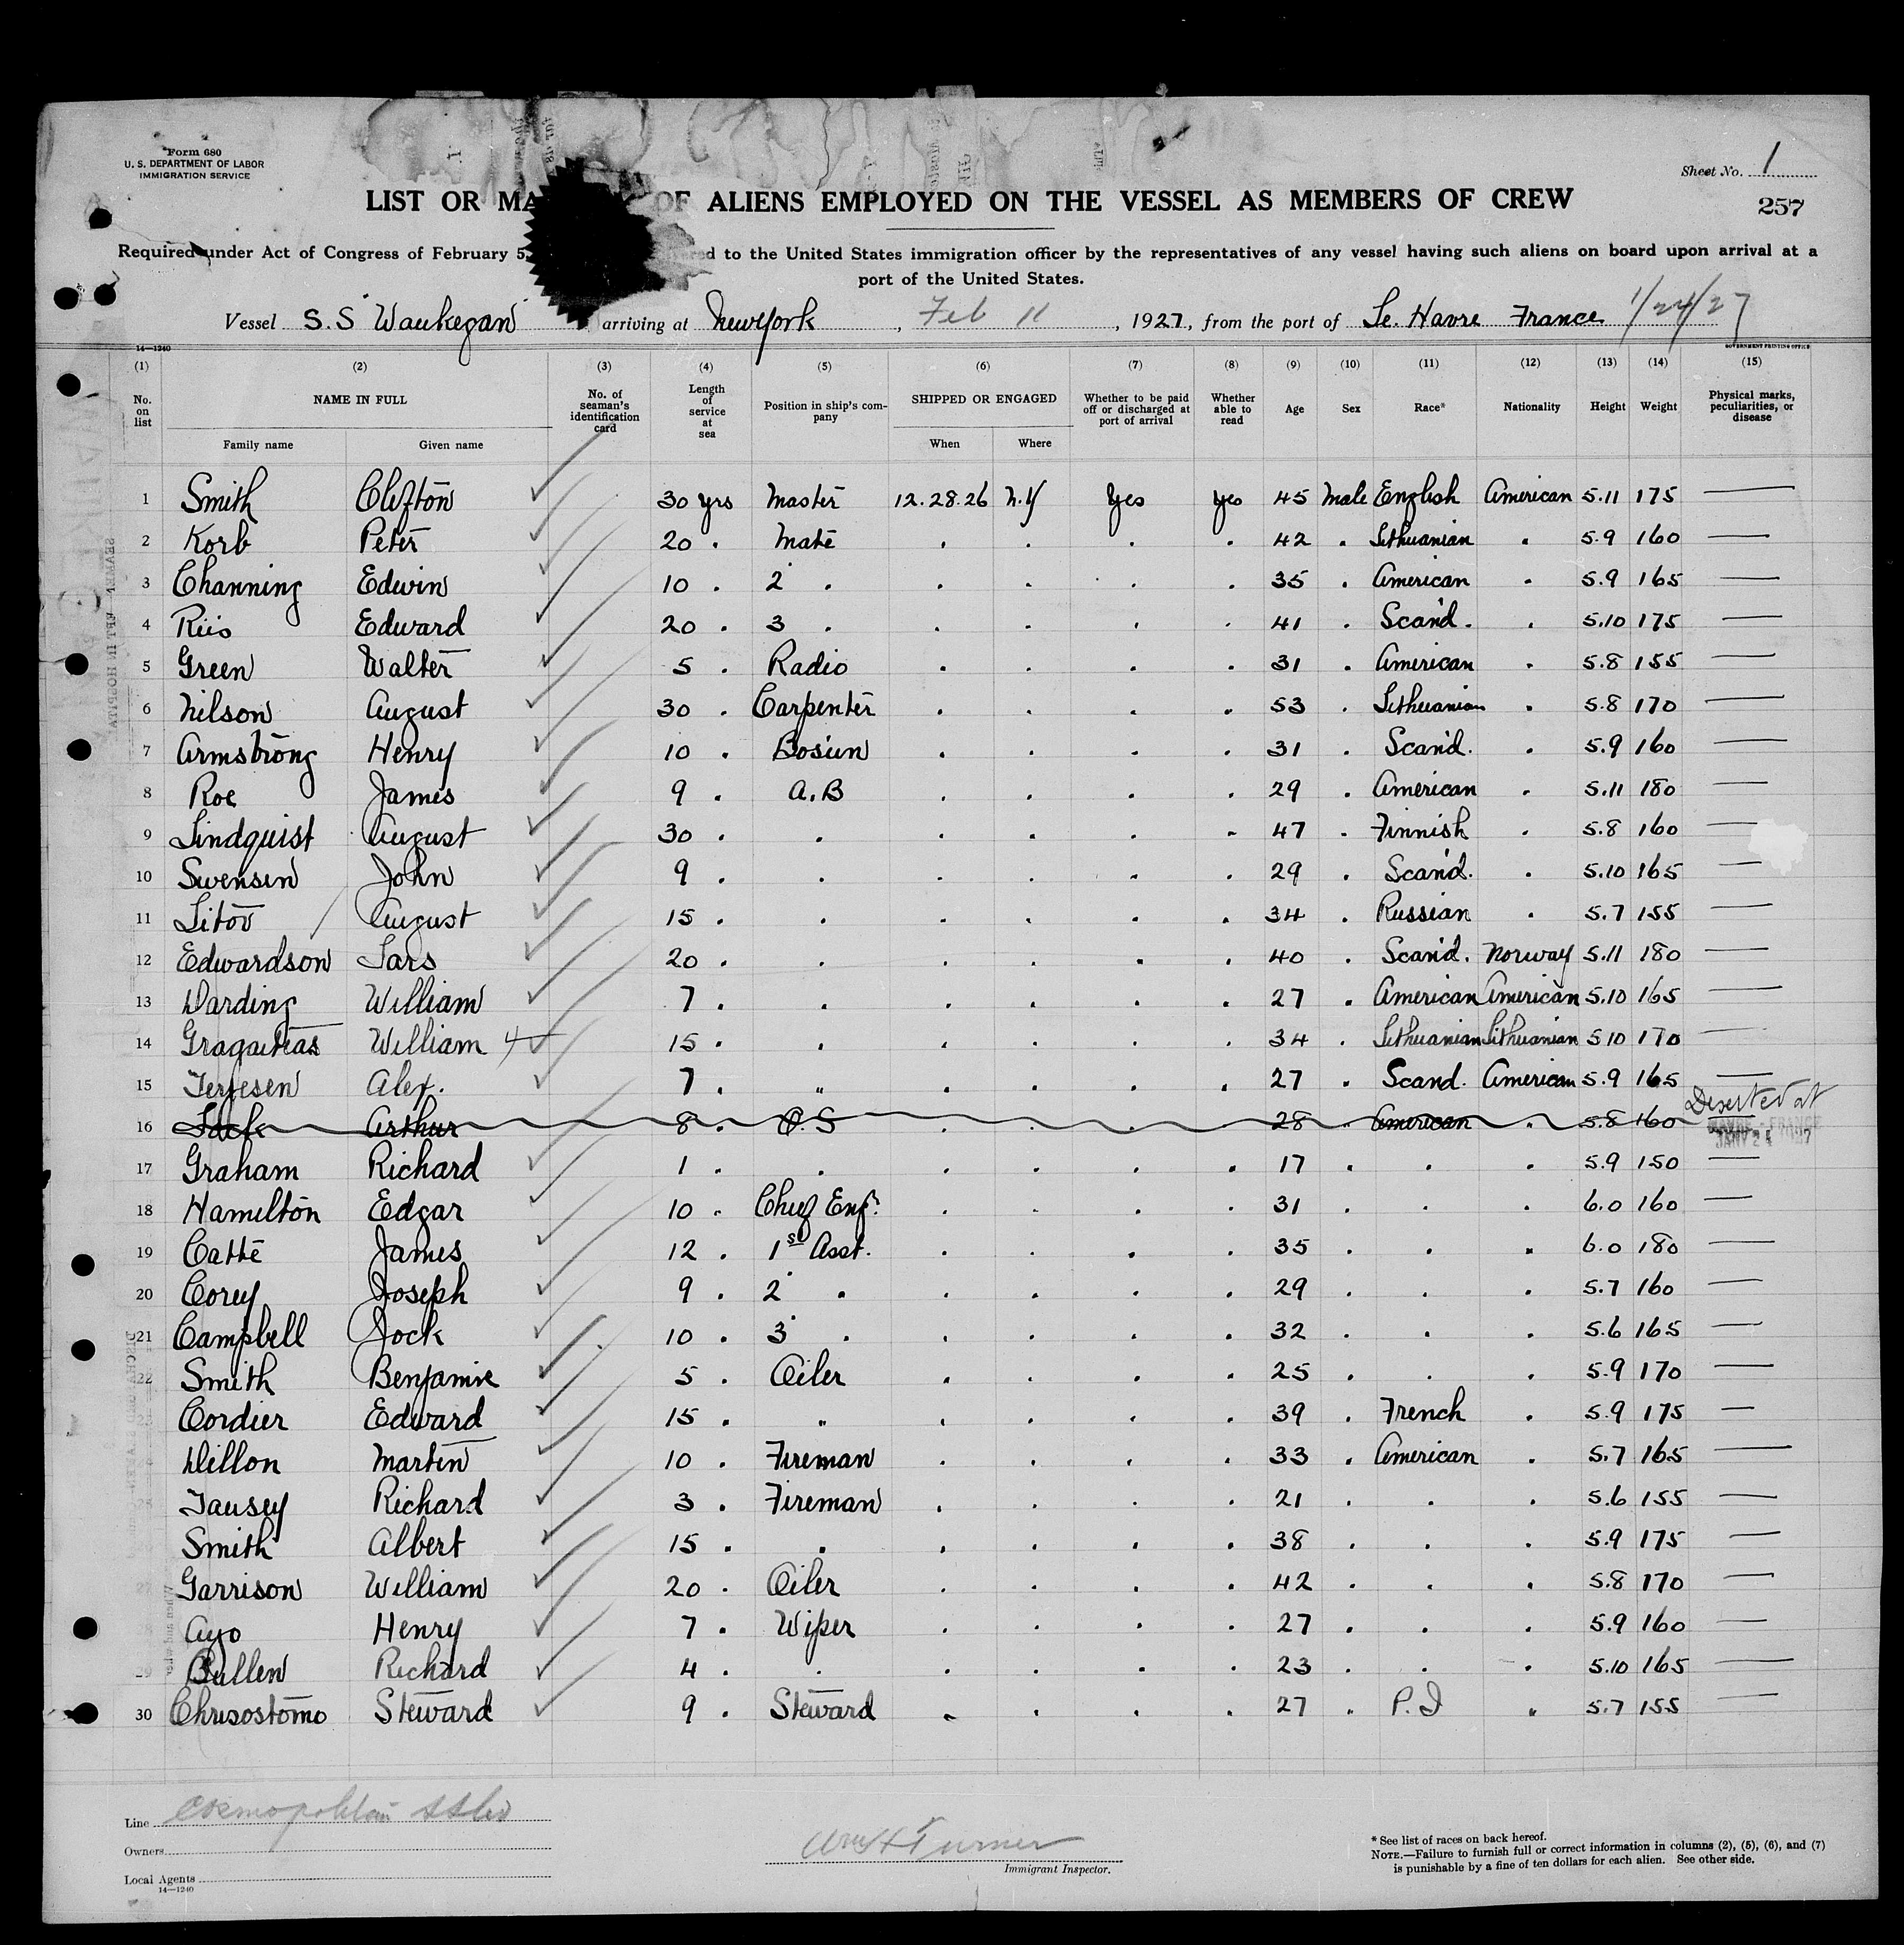 Form 680
U. S. DEPARTMENT OF LABOR
IMMIGRATION SERVICE
Sheet No. 1
257
LIST OR MA OF ALIENS EMPLOYED ON THE VESSEL AS MEMBERS OF CREW
Required under Act of Congress of February 5, to the United States immigration officer by the representatives of any vessel having such aliens on board upon arrival at a
port of the United States.
Vessel S.S Waukegan arriving at New York, Feb 11, 1927, from the port of Le. Havre France 1/24/27
14—1240 GOVERNMENT PRINTING OFFICE
(1) (2) (3) (4) (5) (6) (7) (8) (9) (10) (11) (12) (13) (14) (15)
No. on list NAME IN FULL Family name Given name No. of seaman's identification card Length of service at sea Position in ship's company SHIPPED OR ENGAGED When Where Whether to be paid off or discharged at port of arrival Whether able to read Age Sex Race* Nationality Height Weight Physical marks, peculiarities, or disease
1 Smith Clifton 30 yrs Master 12.28.26 N.Y Yes yes 45 Male English American 5.11 175 —
2 Korb Peter 20 . Mate . . . . 42 . Lithuanian . 5.9 160 —
3 Channing Edwin 10 . 2 . . . . . 35 . American . 5.9 165 —
4 Riis Edward 20 . 3 . . . . . 41 . Scand. . 5.10 175 —
5 Green Walter 5 . Radio . . . . 31 . American . 5.8 155 —
6 Nilson August 30 . Carpenter . . . . 53 . Lithuanian . 5.8 170 —
7 Armstrong Henry 10 . Bosun . . . . 31 . Scand. . 5.9 160 —
8 Roe James 9 . A.B . . . . 29 . American . 5.11 180 —
9 Lindquist August 30 . . . . . . 47 . Finnish . 5.8 160 —
10 Swensen John 9 . . . . . . 29 . Scand. . 5.10 165 —
11 Litov August 15 . . . . . . 34 . Russian . 5.7 155 —
12 Edwardson Lars 20 . . . . . . 40 . Scand. Norway 5.11 180 —
13 Darding William 7 . . . . . . 27 . American American 5.10 165 —
14 William 15 . . . . . . 34 . Lithuanian Lithuanian 5 10 170 —
15 Terjesen Alex. 7 . " . . . . 27 . Scand. American 5.9 165 —
16 Arthur 8 . O.S . . . . 28 . American . 5.8 160 Deserted at
HAVRE - FRANCE
JANY 24 1927
17 Graham Richard 1 . . . . . . 17 . . . 5.9 150 —
18 Hamilton Edgar 10 . Chief Eng. . . . . 31 . . . 6.0 160 —
19 Catte James 12 . 1st Asst. . . . . 35 . . . 6.0 180 —
20 Corey Joseph 9 . 2 . . . . . 29 . . . 5.7 160 —
21 Campbell Jock 10 . 3 . . . . . 32 . . . 5.6 165 —
22 Smith Benjamine 5 . Oiler . . . . 25 . . . 5.9 170 —
Cordier Edward 15 . " . . . . 39 . French . 5.9 175 —
Dillon Martin 10 . Fireman . . . . 33 . American . 5.7 165 —
Tausey Richard 3 . Fireman . . . . 21 . . . 5.6 155 —
Smith Albert 15 . . . . . . 38 . . . 5.9 175 —
Garrison William 20 . Oiler . . . . 42 . . . 5.8 170 —
Ayo Henry 7 . Wiper . . . . 27 . . . 5.9 160 —
29 Bullen Richard 4 . . . . . . 23 . . . 5.10 165 —
30 Chrisostomo Steward 9 . Steward . . . . 27 . P.I . 5.7 155 —
Line Cosmopolitan
Owners
Local Agents
14—1240
Wm H Turner
Immigrant Inspector.
* See list of races on back hereof.
NOTE.—Failure to furnish full or correct information in columns (2), (5), (6), and (7)
is punishable by a fine of ten dollars for each alien. See other side.